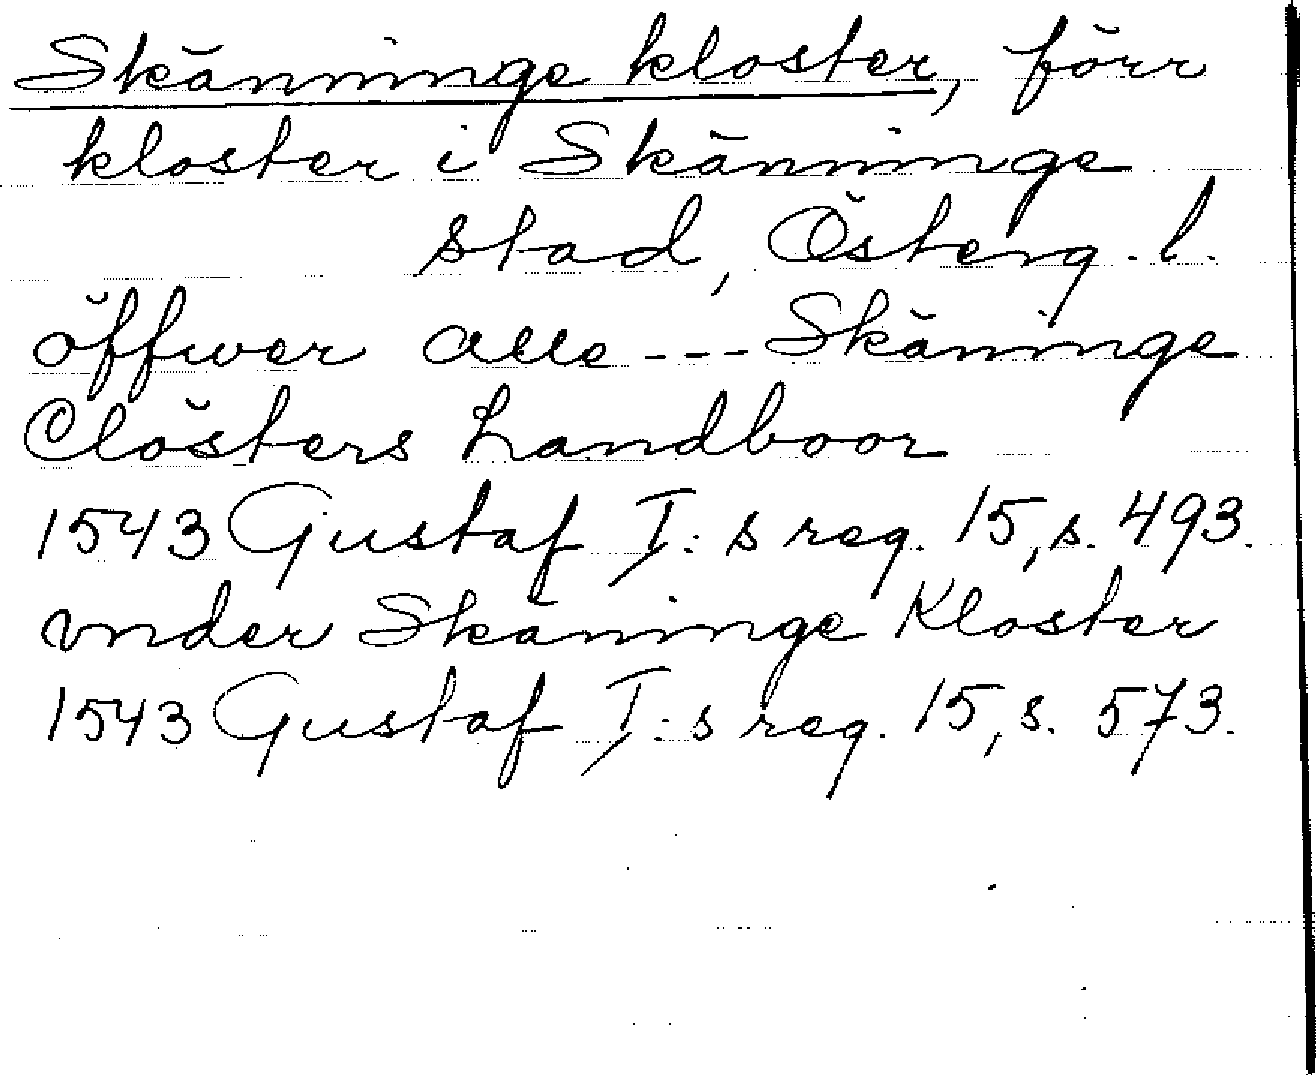 Skänninge kloster, förr
kloster i Skänninge
stad, Österg.l.
öffwer alle --- Skäninge
Clösters Landboor
1543 Gustaf I:s reg. 15, s. 493.
vnder Skäninge Kloster
1543 Gustaf I:s reg. 15, s. 573.